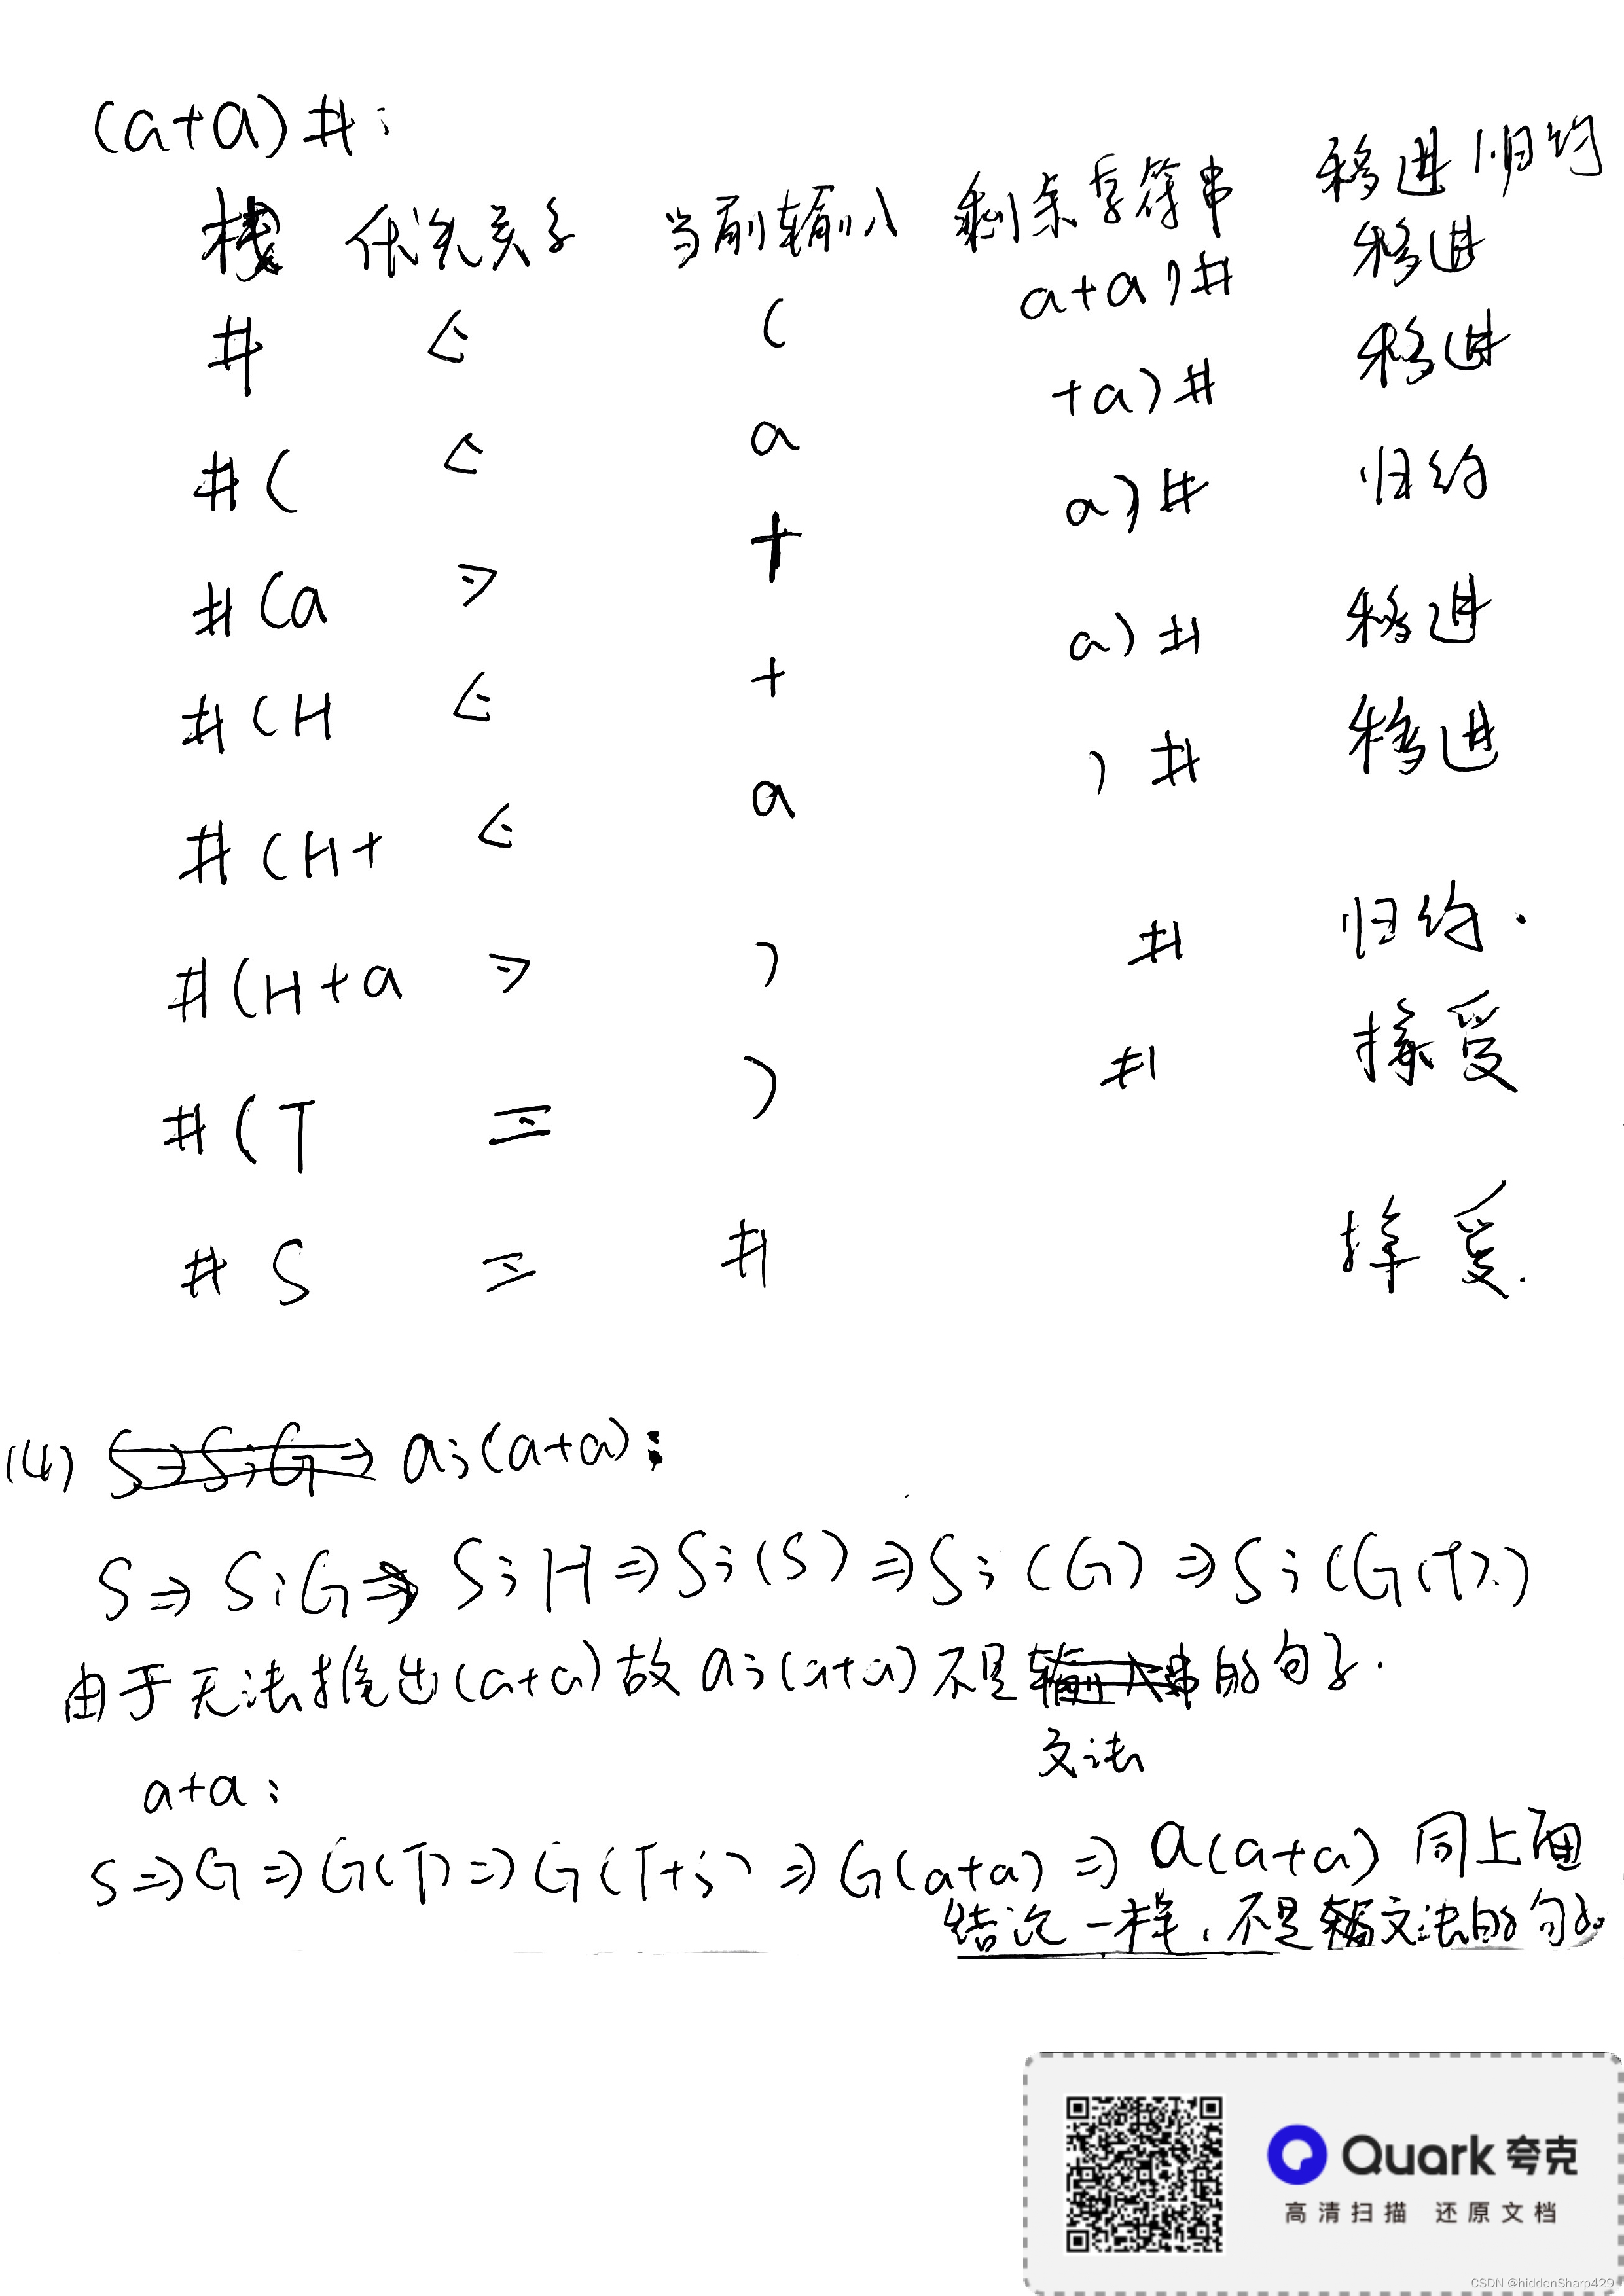 (a+a)#:
栈 优先关系 当前输入 剩余字符串 移进归约
# ⋖ ( a+a)# 移进
#( ⋖ a +a)# 移进
#(a ⋗ + a)# 归约
#(H ⋖ + a)# 移进
#(H+ ⋖ a )# 移进
#(H+a ⋗ ) # 归约.
#(T ≐ ) # 接受
#S ≐ # 接受.
(4) a;(a+a):
S⇒S;G⇒S;H⇒S;(S)⇒S;(G)⇒S;(G(T))
由于无法推出(a+a)故a;(a+a)不是文法的句子.
a+a:
S⇒G⇒G(T)⇒G(T+S)⇒G(a+a)⇒a(a+a) 同上面
结论一样,不是文法的句子。
Quark 夸克
高清扫描 还原文档
CSDN @hiddenSharp429